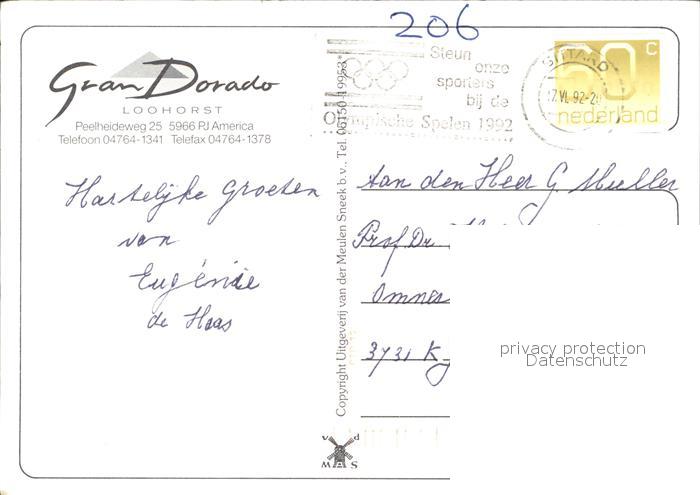 206
Gran Dorado
LOOHORST
Peelheideweg 25 5966 PJ America
Telefoon 04764-1341 Telefax 04764-1378
Hartelijke Groeten
van
Eugénie
de Haas
Copyright Uitgeverij van der Meulen Sneek b.v., Tel. 05150-19953*
v d
W A S
Steun
onze
sporters
bij de
Olympische Spelen 1992
SITTARD
17.VI.92-20
60 c
nederland
Aan den Heer G Muller
Prof. Dr.
Omnes
3731 K
privacy protection
Datenschutz